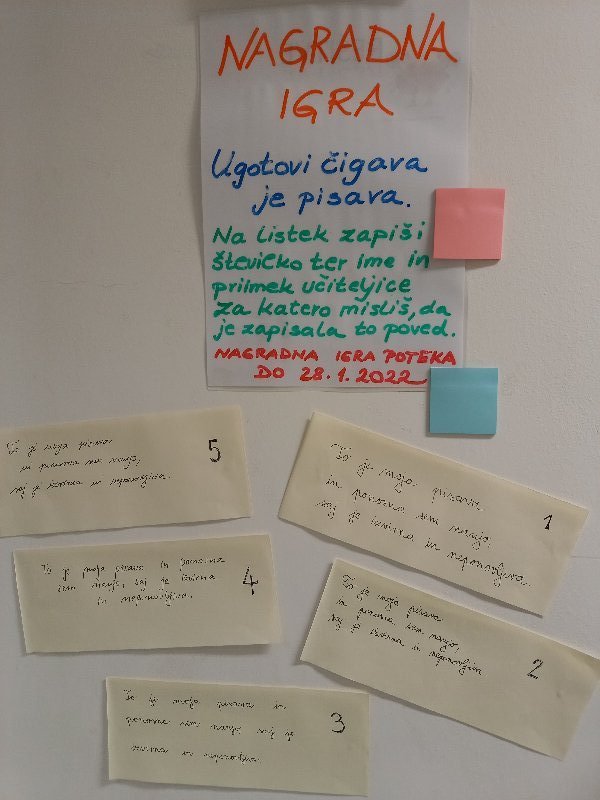 NAGRADNA
IGRA
Ugotovi čigava
je pisava.
Na listek zapiši
številko ter ime in
priimek učiteljice
za katero misliš, da
je zapisala to poved.
NAGRADNA IGRA POTEKA
DO 28.1.2022
5
To je moja pisava
in ponosna na njo,
saj je izvirna in neponovljiva.
1
To je moja pisava
in ponosna sem nanjo,
saj je izvirna in neponovljiva.
4
To je moja pisava in ponosna
sem nanjo, saj je izvirna
in neponovljiva.
2
To je moja pisava
in ponosna sem nanjo,
saj je izvirna in neponovljiva
3
To je moja pisava in
ponosna sem nanjo, saj je
izvirna in